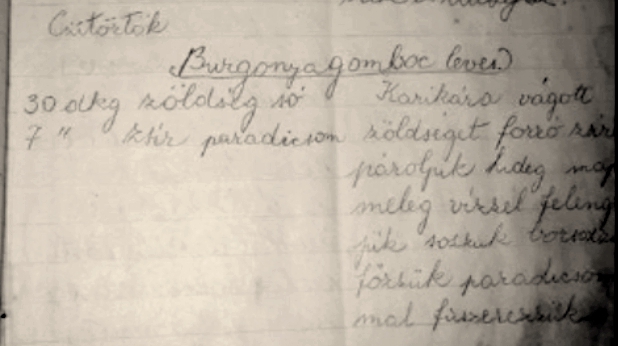 Csütörtök
(Burgonyagomboc leves)
30 dkg zöldség só Karikára vágott
7 " zsír paradicsom zöldséget forró zsír
pároljuk hideg maj
meleg vízzel feleng
jük sózzuk borsozz
főzsük paradicsom
mal fűszerezzük